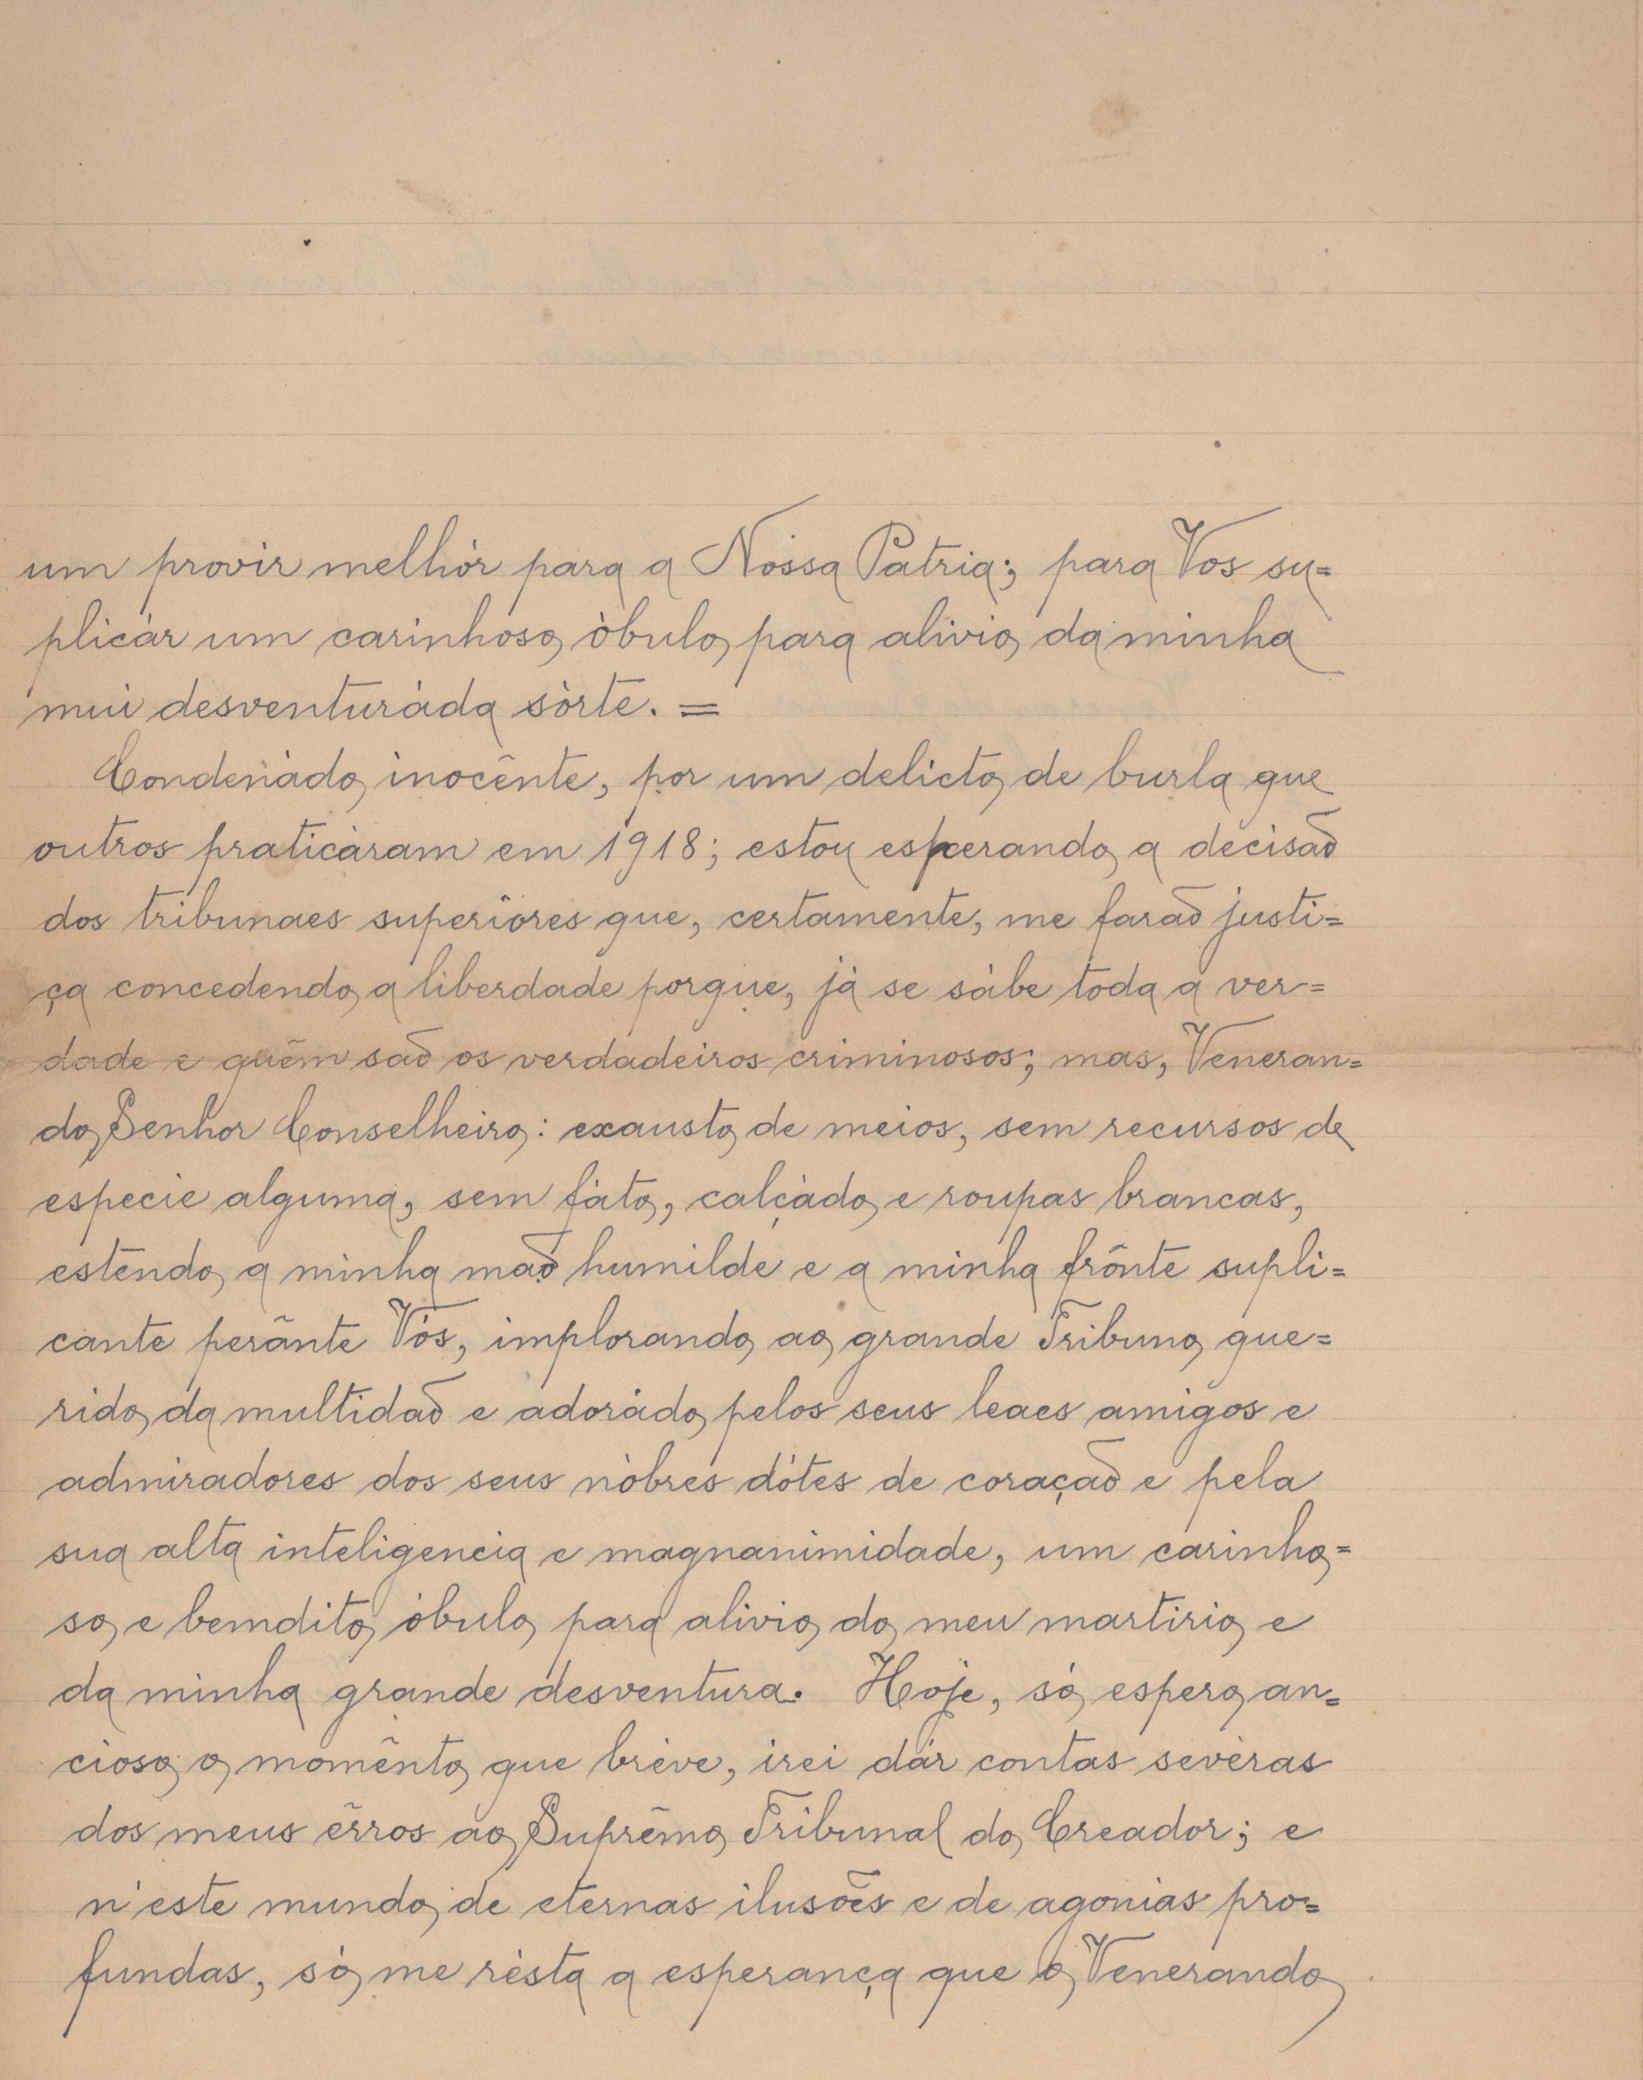 um provir melhór para a Nóssa Patria; para Vos su=
plicár um carinhoso óbulo para alivio da minha
mui desventuráda sórte. =
Condenádo inocênte, por um delicto de burla que
outros praticáram em 1918; estou esperando a decisaõ
dos tribunaes superiôres que, certamente, me faraõ justi=
ça concedendo a liberdade porque, já se sábe toda a ver=
dade e quêm saõ os verdadeiros criminosos; mas, Veneran=
do Senhor Conselheiro: exausto de meios, sem recursos de
especie alguma, sem fáto, calçádo e roupas brancas,
estendo a minha maõ humilde e a minha frônte supli=
cante perânte Vós, implorando ao grande Tribuno que=
rido da multidaõ e adorádo pelos seus leaes amigos e
admiradores dos seus nóbres dótes de coraçaõ e pela
sua alta inteligencia e magnanimidade, um carinho=
so e bemdito óbulo para alivio do meu martirio e
da minha grande desventura. Hoje, só espero an=
cioso o momênto que bréve, irei dár contas sevéras
dos meus êrros ao Suprêmo Tribunal do Creador; e
n'este mundo de eternas ilusões e de agonias pro=
fundas, só me résta a esperança que o Venerando